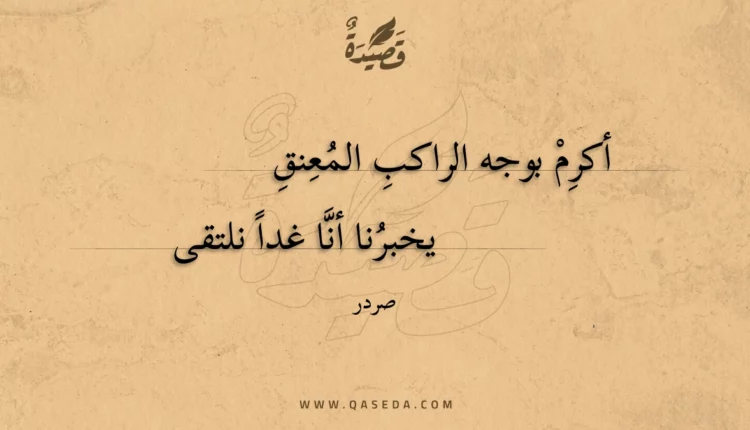 قَصِيدَةٌ
أكرِمْ بوجه الراكبِ المُعِنقِ
يخبرُنا أنَّا غداً نلتقى
صردر
WWW.QASEDA.COM